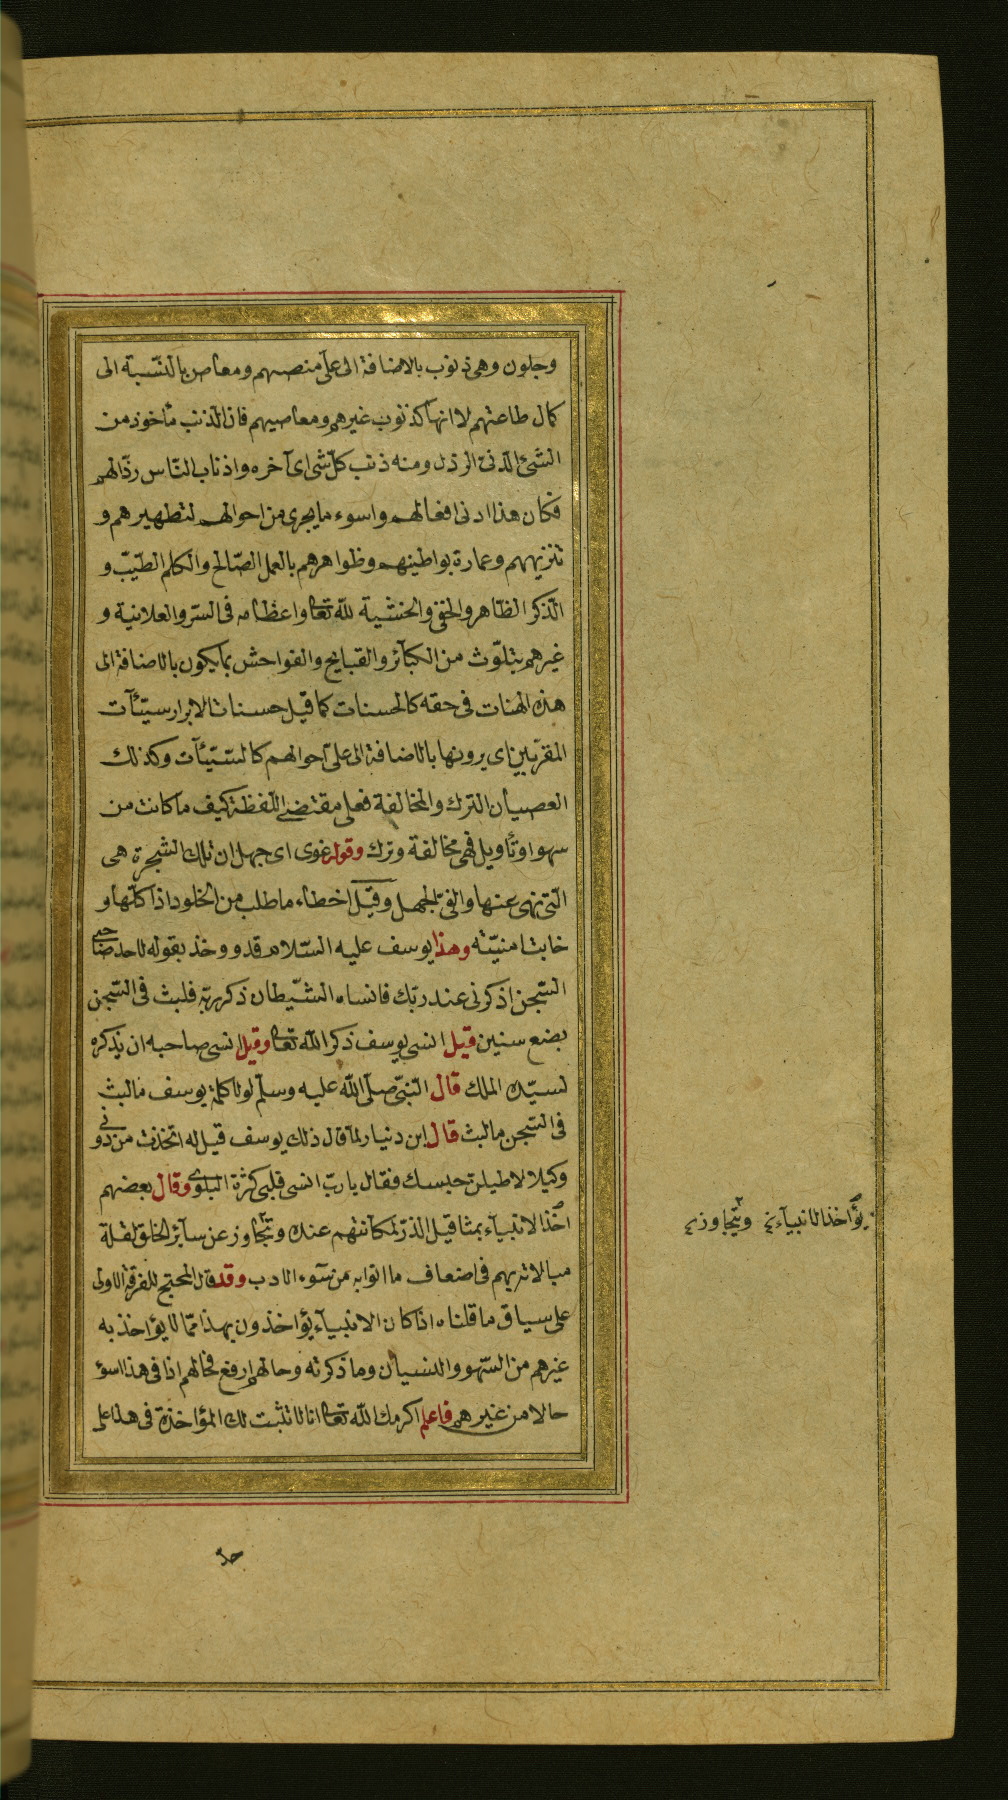 وجلون وهی ذنوب بالاضافة الی علی منصبهم ومعاص بالنسبة الی
کمال طاعتهم لا انها کذنوب غیرهم ومعاصیهم فان الذنب مأخوذ من
الشئ الدنی الرذل ومنه ذنب کلّ شی ای آخره واذناب النّاس رذّالهم
فکان هذا ادنی افعالهم واسوء ما یجری من احوالهم لتطهیرهم و
تنزیههم وعمارة بواطینهم وظواهرهم بالعمل الصّالح والکلم الطیّب و
الذّکر الظّاهر والخفی والخشیة للّه تعا واعظامه فی السّر والعلانیة و
غیرهم یتلوّث من الکبآئر والقبایح والفواحش بما یکون بالاضافة الی
هذه الهنات فی حقه کالحسنات کما قیل حسنات الابرار سیّئآت
المقرّبین ای یرونها بالاضافة الی علیّ احوالهم کالسّیّئآت وکذلک
العصیان الترک والمخالفة فعلی مقتضی اللفظة کیف ما کانت من
سهو او تأویل فهی مخالفة وترک وقوله غوی ای جهل ان تلک الشجرة هی
الّتی نهی عنها والغیّ الجهل وقیل اخطاء ما طلب من الخلود اذ اکلها و
خابت امنیّته وهذا یوسف علیه السّلام قد ووخذ بقوله لاحد صاحبی
السّجن اذکرنی عند ربّک فانساه الشّیطان ذکر ربّه فلبث فی السّجن
بضع سنین قیل انسی یوسف ذکر اللّه تعا وقیل انسی صاحبه ان یذکره
لسیّده الملک قال النّبیّ صلّی اللّه علیه وسلّم لولا کلمة یوسف ما لبث
فی السّجن ما لبث قال ابن دینار لما قال ذلک یوسف قیل له اتخذت من دونی
وکیلا لاطیلن حبسک فقال یا ربّ انسی قلبی کثرة البلوی وقال بعضهم
اخذ الانبیآء بمثاقیل الذّر لمکانتهم عنده ویتجاوز عن سآیر الخلق لقلة
مبالاته بهم فی اضعاف ما اتوا به من سوء الادب وقد قال المحتج للفرقة الاولی
علی سیاق ما قلناه اذا کان الانبیآء یؤاخذون بهذا ممّا لا یؤاخذ به
غیرهم من السّهو والنسیان وما ذکرته وحالهم ارفع فحالهم اذا فی هذا اسؤ
حالا من غیرهم فاعلم اکرمک اللّه تعا انا لا نثبت لک المؤاخذة فی هذا علی
یؤاخذ الانبیآء ویتجاوز